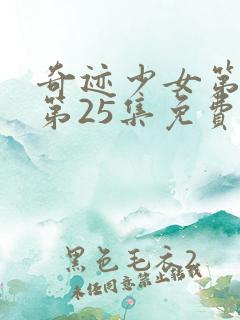 奇迹少女第
第25集免費
黑色毛衣2
未经同意禁止转载